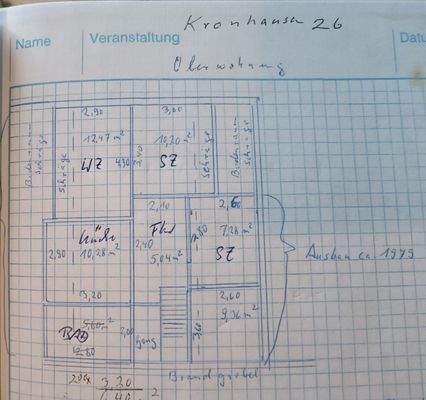 Kronhausen 26
Name
Veranstaltung
Datu
Oberwohnung
2,90
3,00
Bodenraum
Schräge
Schräge
12,47 m²
WZ
4,30
10,20 m²
SZ
Schräge
Bodenraum
Schräge
2,10
2,60
Küche
Flur
2,80
7,28 m²
2,90
10,28 m²
2,40
5,04 m²
SZ
Ausbau ca. 1979
3,20
2,60
5,60 m²
BAD
2,00
Gang
3,60
9,36 m²
2,80
Brandgiebel
3,20